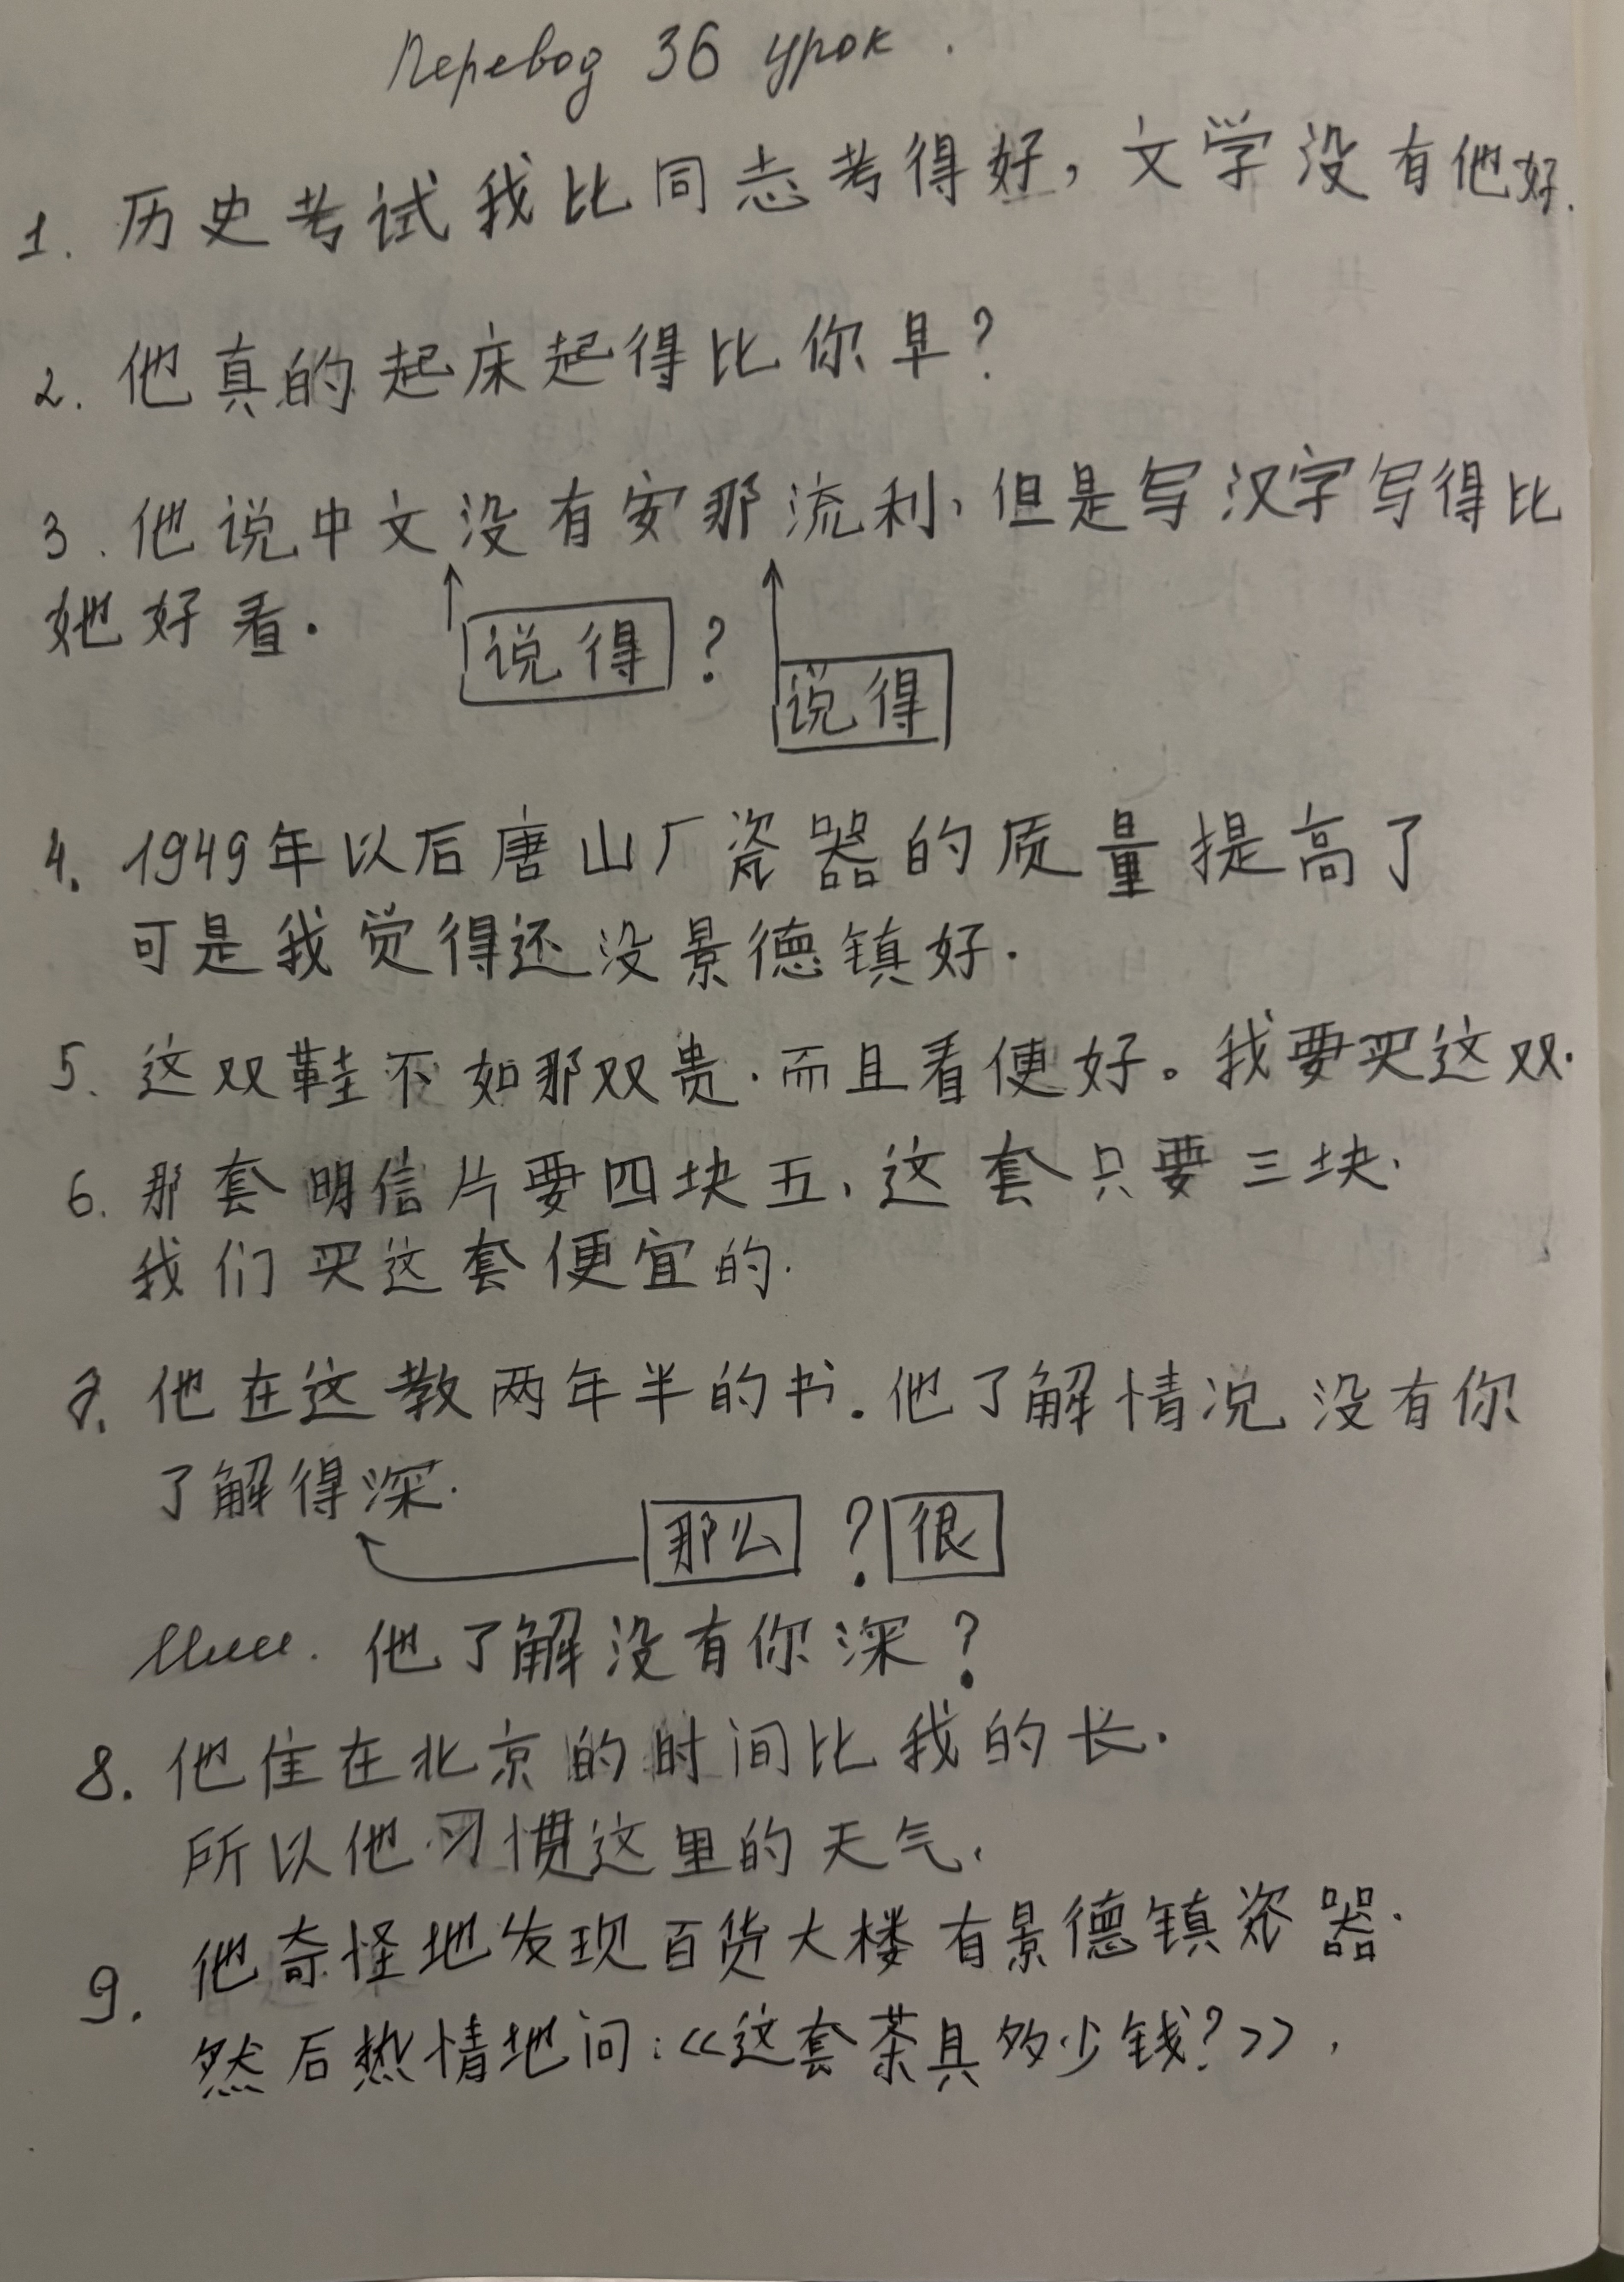 Перевод 36 урок.
1. 历史考试我比同志考得好，文学没有他好.
2. 他真的起床起得比你早？
3. 他说中文没有安那流利，但是写汉字写得比
她好看.
说得 ?
说得
4. 1949年以后唐山厂瓷器的质量提高了
可是我觉得还没景德镇好.
5. 这双鞋不如那双贵.而且看便好。我要买这双.
6. 那套明信片要四块五，这套只要三块.
我们买这套便宜的.
7. 他在这教两年半的书.他了解情况没有你
了解得深.
那么 ? 很
Или. 他了解没有你深？
8. 他住在北京的时间比我的长.
所以他习惯这里的天气.
9. 他奇怪地发现百货大楼有景德镇瓷器.
然后热情地问:«这套茶具多少钱?».